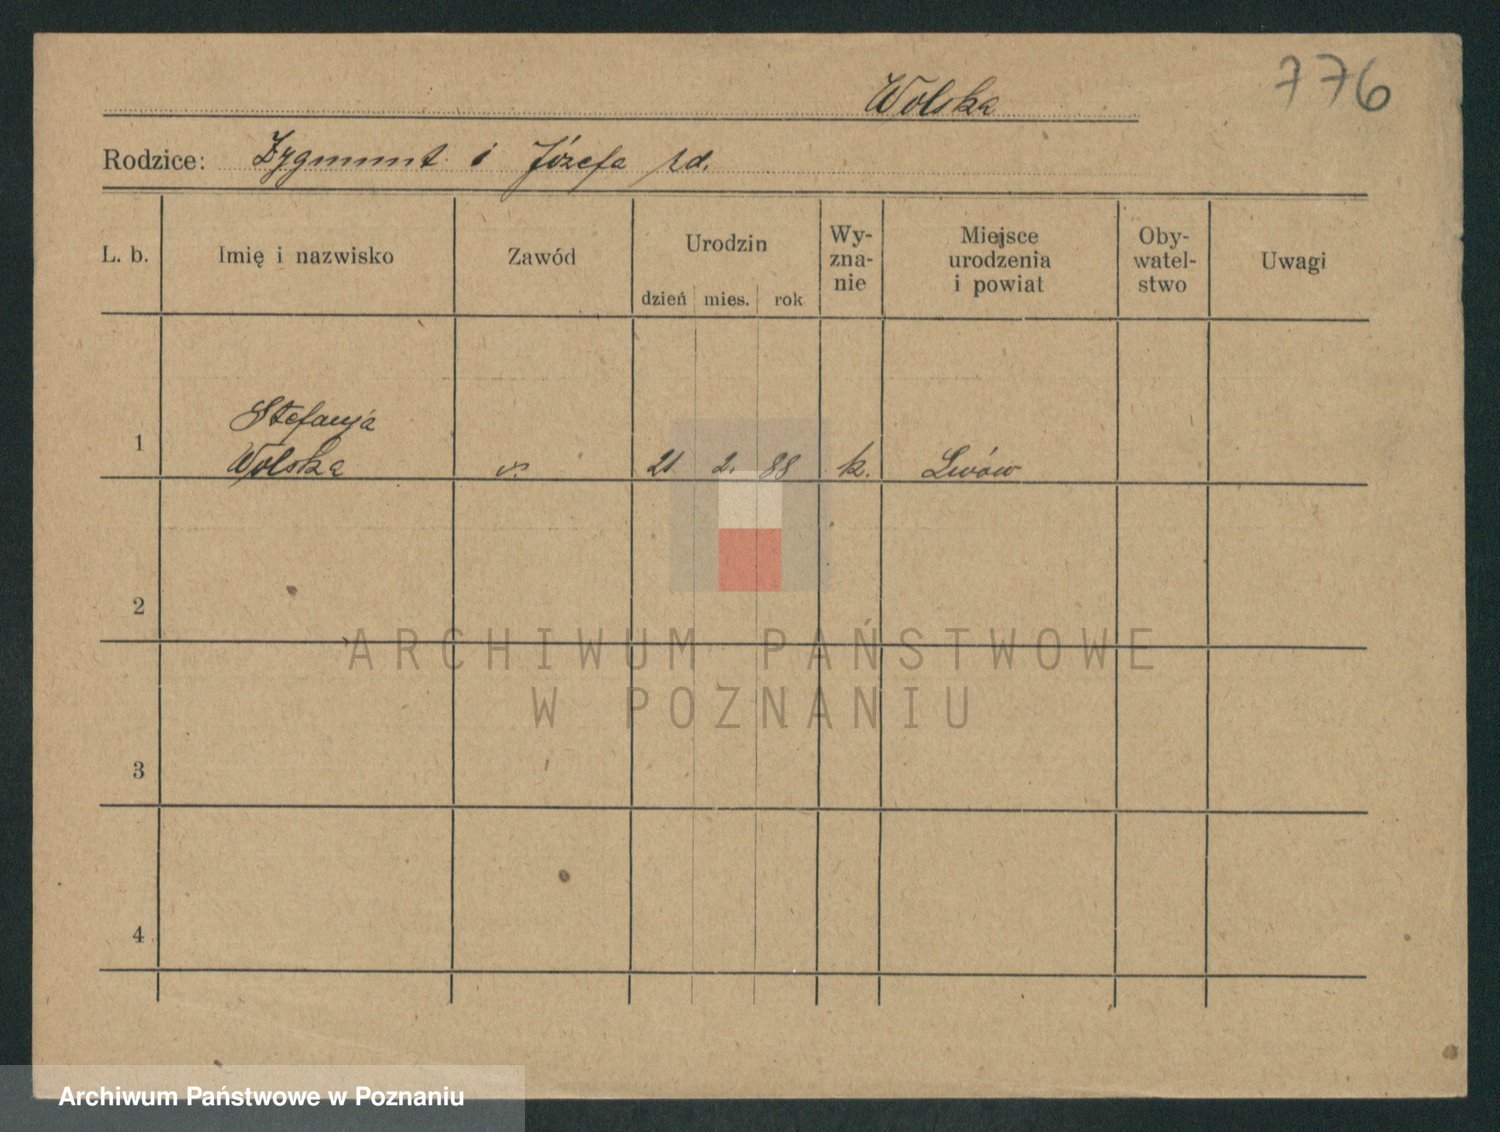 776
Wolska
Rodzice: Zygmunt i Józefa
L. b. Imię i nazwisko Zawód Urodzin dzień mies. rok Wy-
zna-
nie Miejsce
urodzenia
i powiat Oby-
watel-
stwo Uwagi
Stefanja
1 Wolska 21 2. 88 k. Lwów
2
3
4
ARCHIWUM PAŃSTWOWE
W POZNANIU
Archiwum Państwowe w Poznaniu